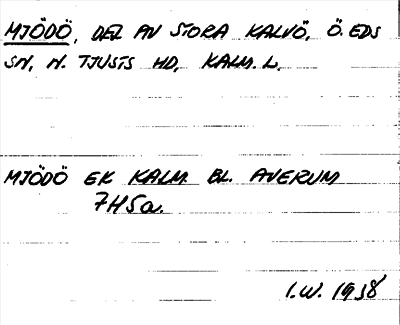 MJÖDÖ, DEL AV STORA KALVÖ, Ö. EDS
SN, N. TJUSTS HD, KALM. L.
MJÖDÖ EK KALM. BL. AVERUM
7H5a.
I.W. 1938